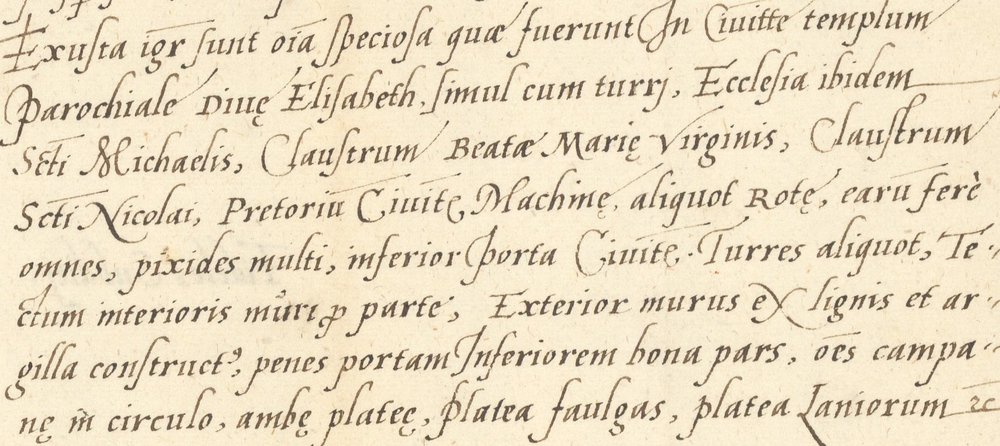 Exusta igr̄ sunt oīa speciosa quæ fuerunt In Ciuitte templum
Parochiale Diuę Elisabeth, simul cum turrj, Ecclesia ibidem
Sctī Michaelis, Claustrum Beatæ Marię Virginis, Claustrum
Sctī Nicolai, Pretoriū Ciuitę, Machinę, aliquot Rotę, earū ferè
omnes, pixides multi, inferior porta Ciuitę, Turres aliquot, Te-
ctum interioris muri ꝓ parte, Exterior murus ex lignis et ar-
gilla constructꝰ, penes portam Inferiorem bona pars, oēs campa-
nę in̄ circulo, ambę plateę, platea faulgas, platea Laniorum ꝛc